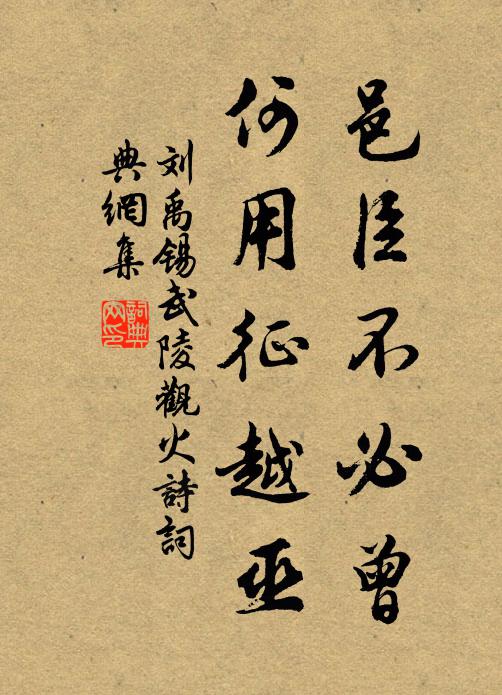 邑臣不必曾
何用征越巫
刘禹锡武陵觀火詩詞
典網集
詞典
网印